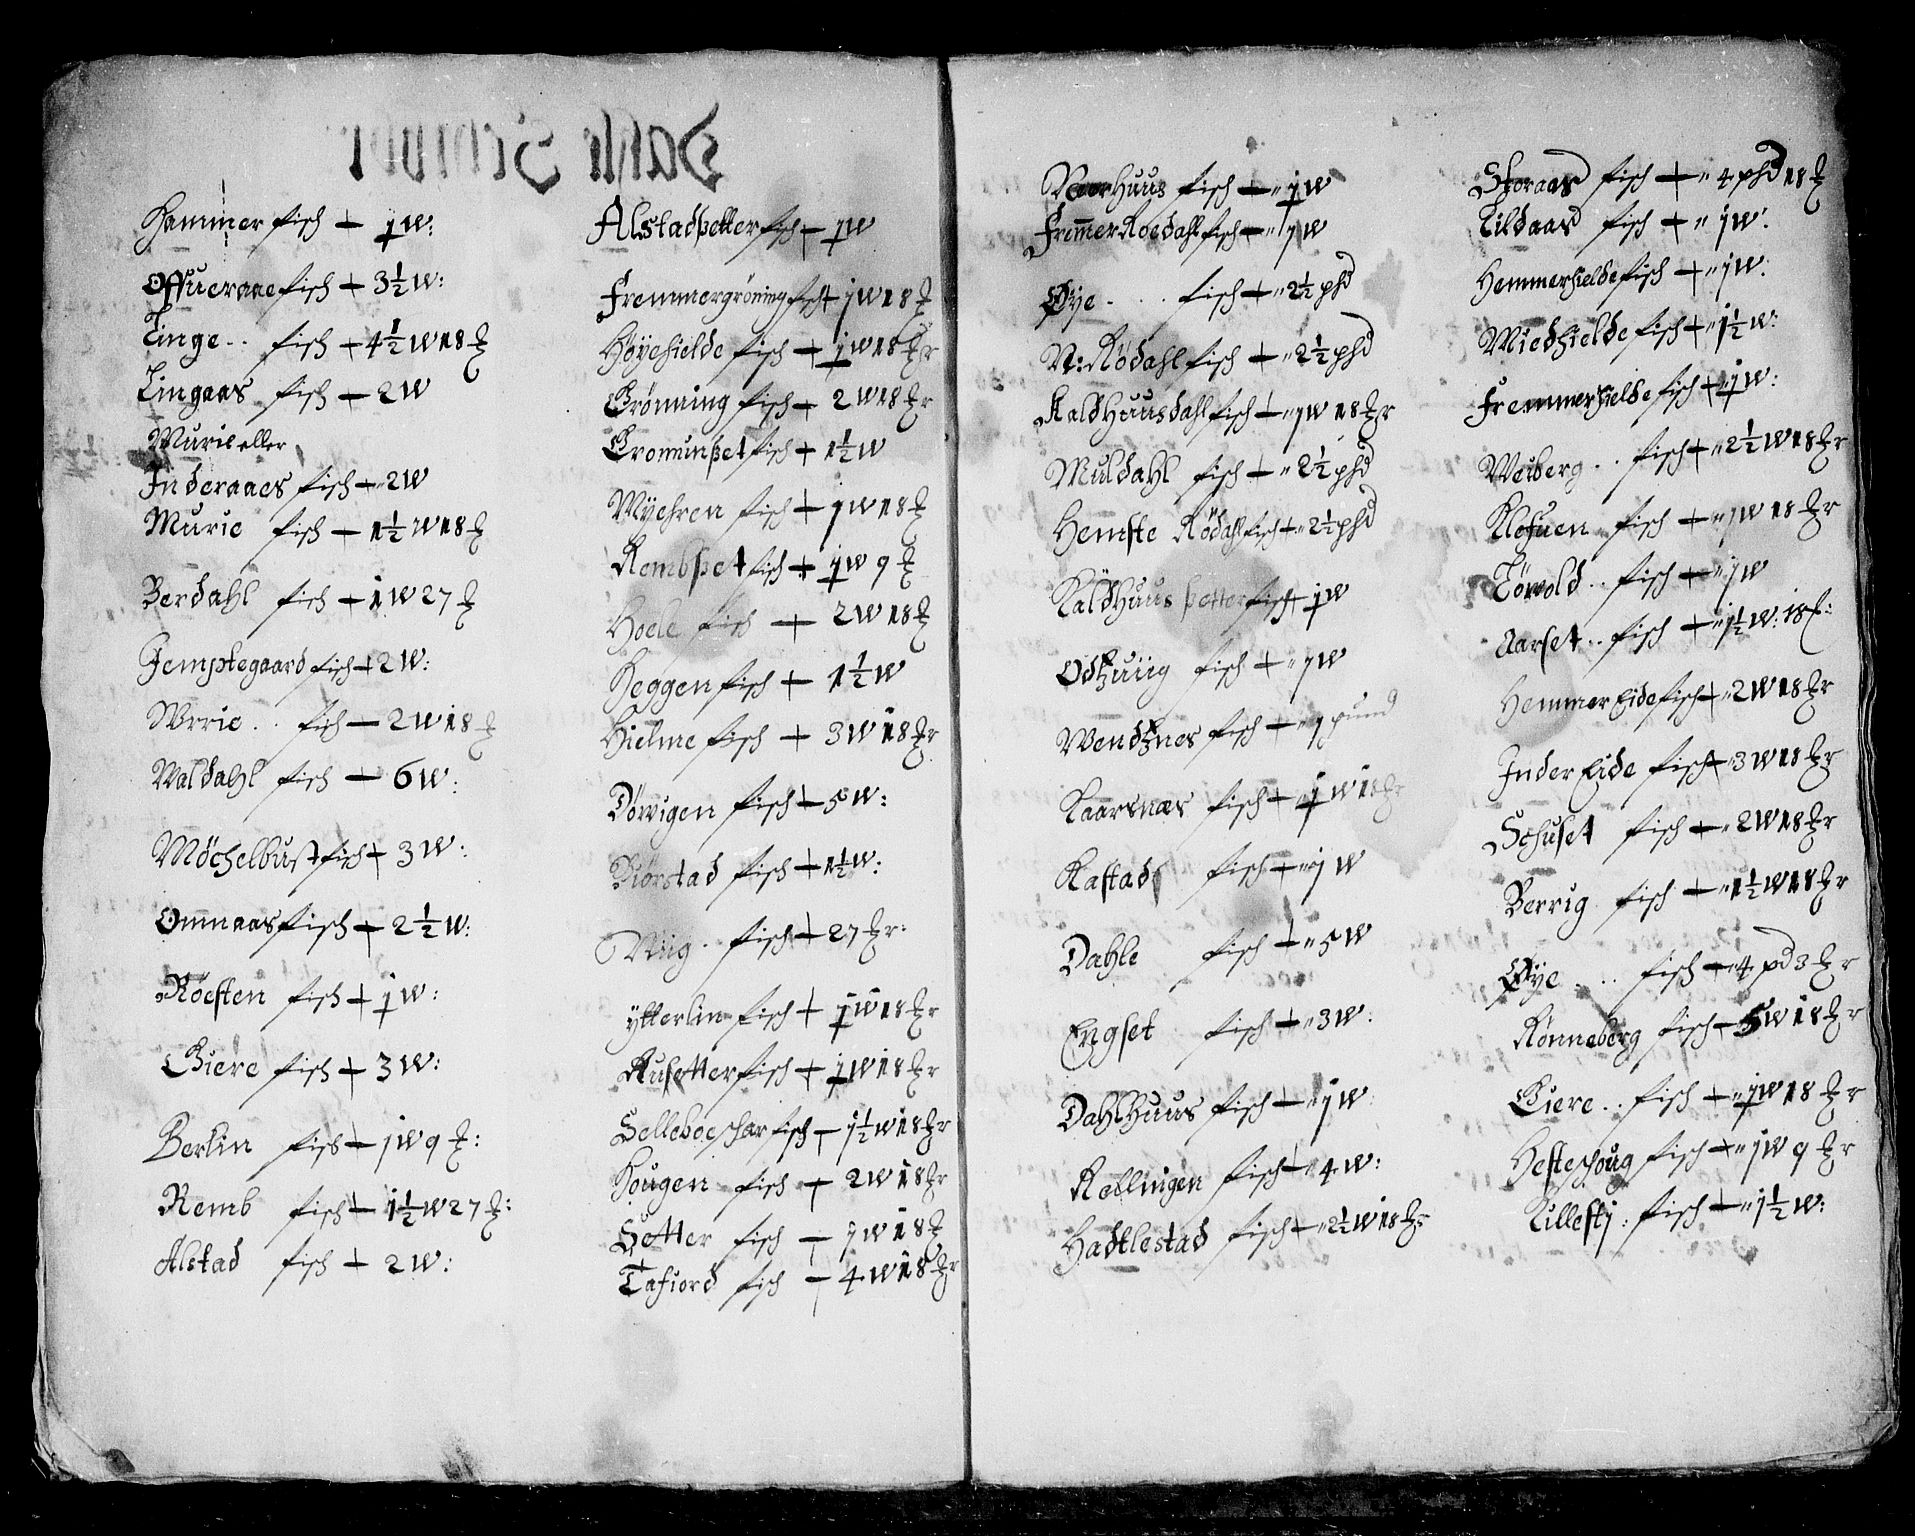 Hammer fisch + 1 W:
Offueraae fisch + 3½ W:
Linge.. fisch + 4½ W 18 ℔
Lingaas fisch + 2 W
Murie eller
Inderaaes fisch + 2 W
Murie fisch + 1½ W 18 ℔
Berdahl fisch + 1 W 27 ℔
Jemptegaard fisch + 2 W:
Wrrie.. fisch + 2 W 18 ℔
Waldahl fisch + 6 W:
Möchelbust fisch + 3 W:
Ommaas fisch + 2½ W:
Röesten fisch + 1 W:
Giere fisch + 3 W:
Berlin fisch + 1 W 9 ℔:
Remb fisch + 1½ W 27 ℔:
Alstad fisch + 2 W:
Alstadsetter fisch + 1 W
Fremmergröning fisch + 1 W 18 ℔
Höyehielde fisch + 1 W 18 ℔r
Grönning fisch + 2 W 18 ℔r
Gronunset fisch + 1½ W
Myehren fisch + 1 W 18 ℔
Rembset fisch + 1 W 9 ℔
Hoele fisch + 2 W 18 ℔
Heggen fisch + 1½ W
Hielme fisch + 3 W 18 ℔r
Döwigen fisch + 5 W:
Biörstad fisch + 1½ W:
Riig.. fisch + 27 ℔r:
ytterlin fisch + 1 W 18 ℔r
Rusetter fisch + 1 W 18 ℔r
Selleboeschar fisch + 1½ W 18 ℔r
Hougen fisch + 2 W 18 ℔r
Setter fisch + 1 W 18 ℔
Tafiord fisch + 4 W 18 ℔r
Norhuus fisch + " 1 W
Fremmer Roedahl fisch + " 1 W
Øye.... fisch + " 2½ phd
N: Rödahl fisch + " 2½ phd
Kaldhuusdahl fisch + " 1 W 18 ℔r
Muldahl fisch + " 2½ phd
Hemste Rödahl fisch + " 2½ phd
Kaldhuus setter fisch + 1 W
Odzuiig fisch + " 1 W
Wendznes fisch + " 1 pund
Kaarsnæs fisch + " 1 W 18 ℔r
Kastad fisch + " 1 W
Dahle fisch + " 5 W
Engset fisch + " 3 W:
Dahlhuus fisch + " 1 W
Rellingen fisch + " 4 W:
Hadtlestad fisch + " 2½ W 18 ℔r
Storaas fisch + " 4 phd 18 ℔
Lildaas fisch + " 1 W:
Hemmerhielde fisch + " 1 W:
Miedhielde fisch + " 1½ W:
Fremmerhielde fisch + " 1 W:
Weiberg.. fisch + " 2½ W 18 ℔r
Klofuen fisch + " 1 W 18 ℔r
Löwold.. fisch + " 1 W
Aarset.. fisch + " 1½ W: 18 ℔:
Hemmer Eide fisch + " 2 W 18 ℔r
Inder Eide fisch + " 3 W 18 ℔r
Schuset fisch + " 2 W 18 ℔r
Berrig fisch + " 1½ W 18 ℔r
Øye.... fisch + " 4 pd 3 ℔r
Rønneberg fisch + 5 W 18 ℔r
Giere.. fisch + " 1 W 18 ℔r
Hestechoug fisch + " 1 W 9 ℔r
Lillestj: fisch + " 1½ W: